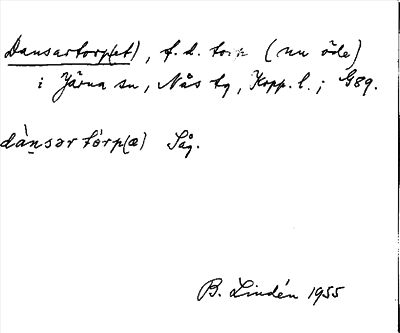 Dansartorp(et), f. d. torp (nu öde)
i Järna sn, Nås tg, Kopp. l.; G89.
dànsar tòrp(æ) Såg.
B. Lindén 1955